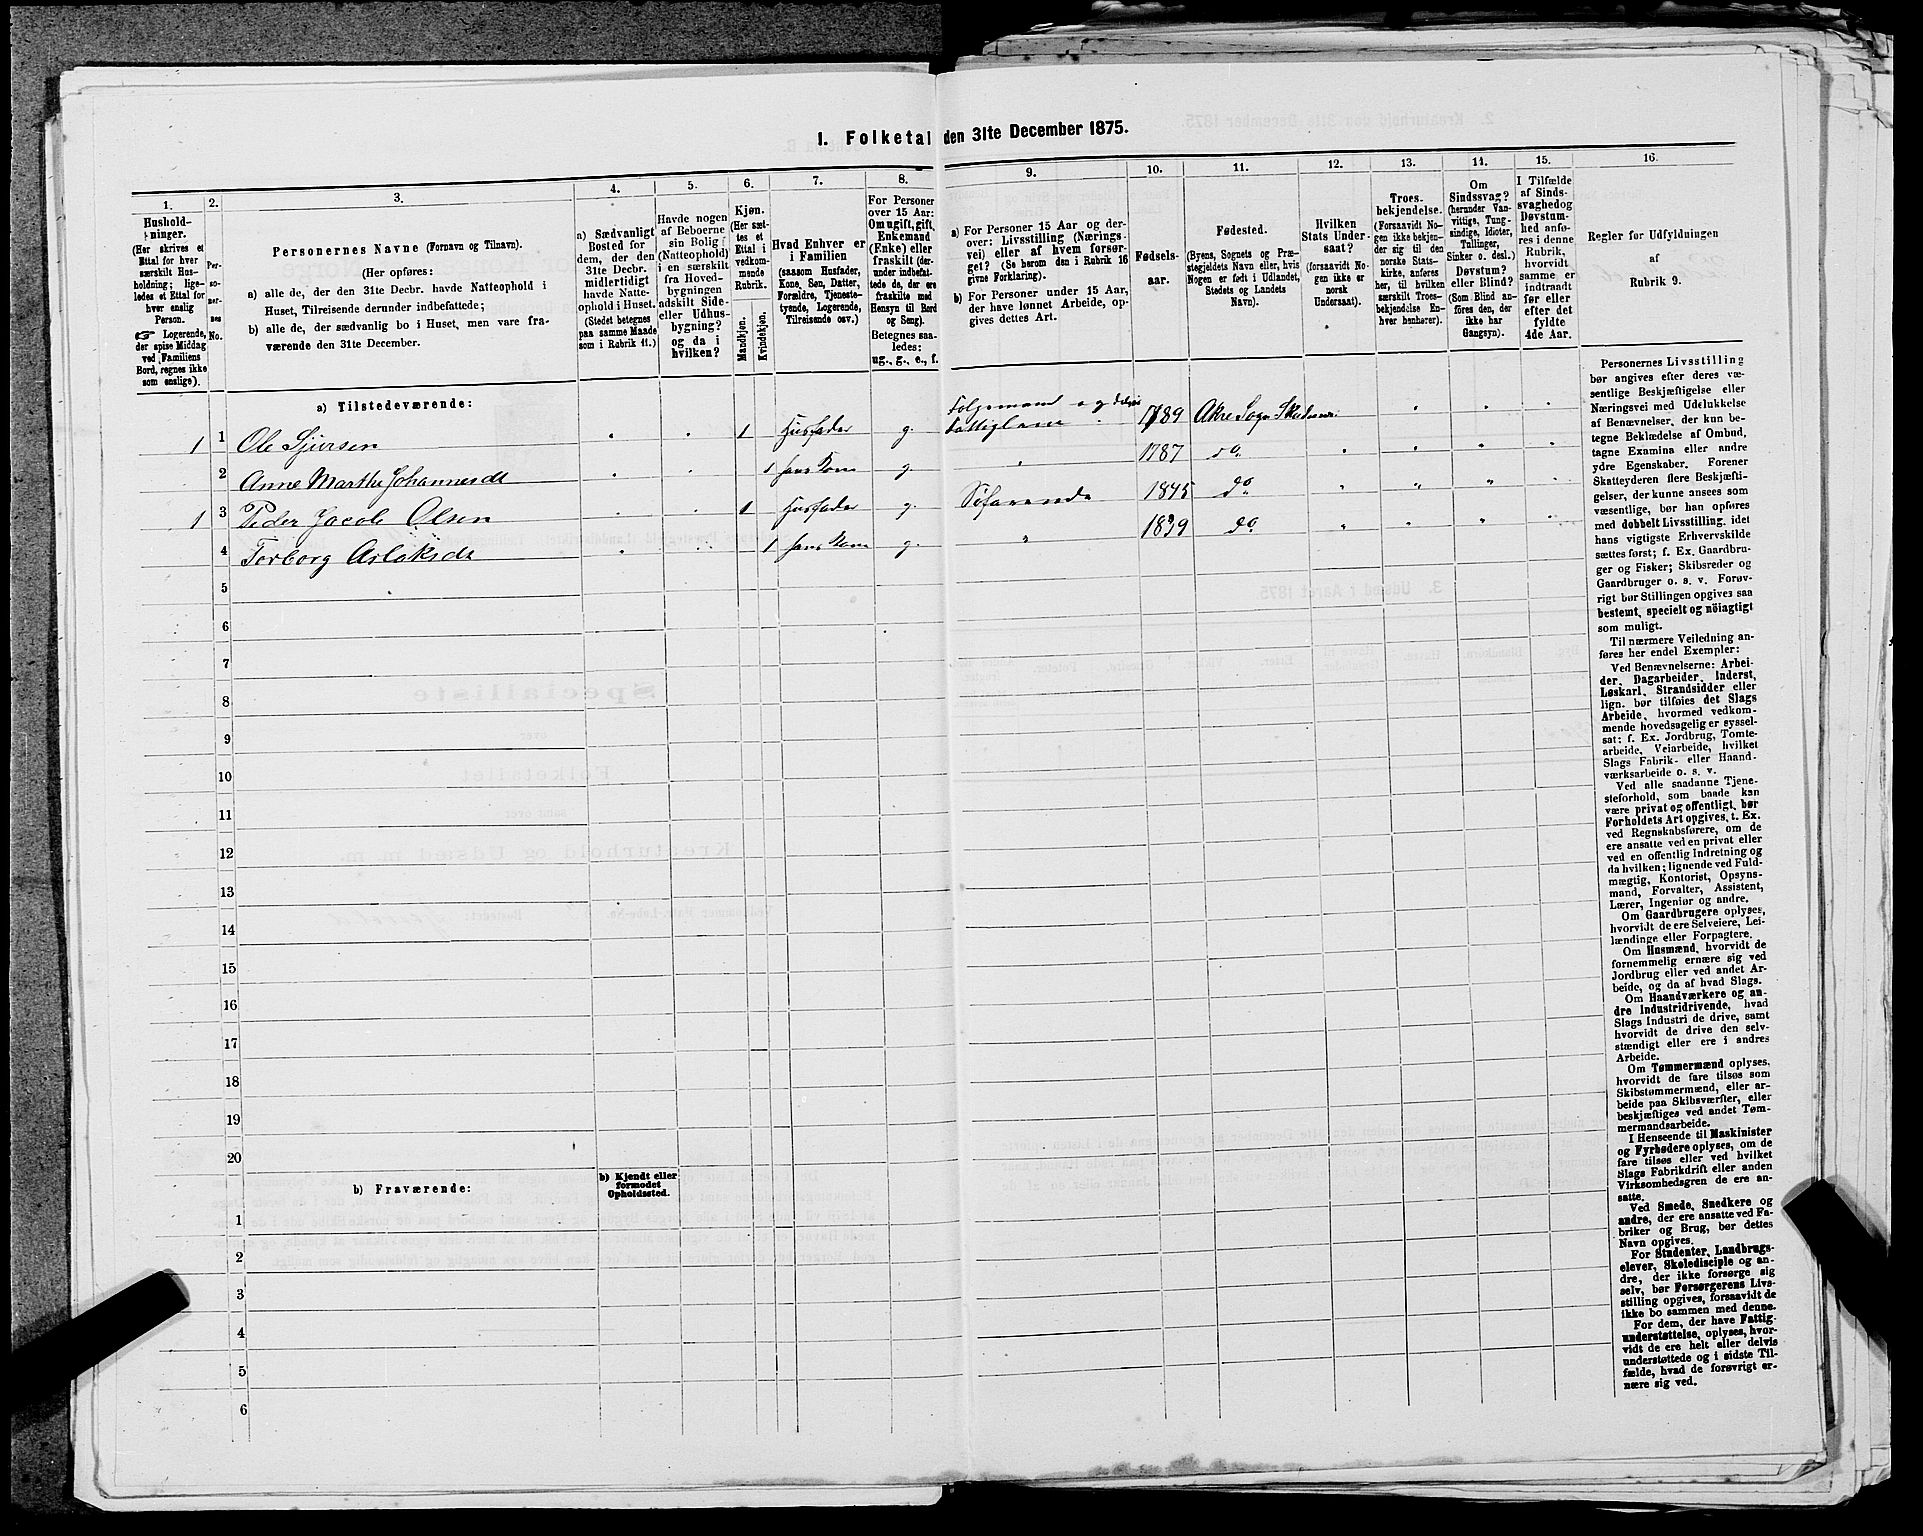 1. Folketal den 31te December 1875.
1. 2. 3. 4. 5. 6. 7. 8. 9. 10. 11. 12. 13. 14. 15. 16.
Hushold-
ninger.
(Her skrives et
Ettal for hver
særskilt Hus-
holdning; lige-
ledes et Ettal for
hver enslig
Person.
☞ Logerende,
der spise Middag
ved Familiens
Bord, regnes ikke
som enslige).
Per-
so-
ner-
nes
No.
Personernes Navne (Fornavn og Tilnavn).
(Her opføres:
a) alle de, der den 31te Decbr. havde Natteophold i
Huset, Tilreisende derunder indbefattede;
b) alle de, der sædvanlig bo i Huset, men vare fra-
værende den 31te December.
a) Sædvanligt
Bosted for
dem, der den
31te Decbr.
midlertidigt
havde Natte-
ophold i Huset.
(Stedet betegnes
paa samme Maade
som i Rubrik 11.)
Havde nogen
af Beboerne
sin Bolig
(Natteophold)
i en særskilt
fra Hoved-
bygningen
adskilt Side-
eller Udhus-
bygning?
og da i
hvilken?
Kjøn.
(Her sæt-
tes et
Ettal i
vedkom-
mende
Rubrik.
Mandkjøn.
Kvindekjøn.
Hvad Enhver er
i Familien
(saasom Husfader,
Kone, Søn, Datter,
Forældre, Tjeneste-
tyende, Logerende,
Tilreisende osv.)
For Personer
over 15 Aar:
Om ugift, gift,
Enkemand
(Enke) eller
fraskilt (der-
under indbefat-
tede de, der ere
fraskilte med
Hensyn til Bord
og Seng).
Betegnes saa-
ledes:
ug., g., e., f.
a) For Personer 15 Aar og der-
over: Livsstilling (Nærings-
vei) eller af hvem forsør-
get? (Se herom den i Rubrik 16
givne Forklaring).
b) For Personer under 15 Aar,
der have lønnet Arbeide, op-
gives dettes Art.
Fødsels-
aar.
Fødested.
(Byens, Sognets og Præ-
stegjeldets Navn eller, hvis
Nogen er født i Udlandet,
Stedets og Landets
Navn).
Hvilken
Stats Under-
saat?
(forsaavidt No-
gen ikke er
norsk
Undersaat).
Troes-
bekjendelse.
(Forsaavidt No-
gen ikke bekjen-
der sig til den
norske Stats-
kirke, anføres
her, til hvilken
særskilt Troes-
bekjendelse En-
hver henhører).
Om
Sindssvag?
(herunder Van-
vittige, Tung-
sindige, Idioter,
Tullinger,
Sinker o. desl.)
Døvstum?
eller Blind?
(Som Blind an-
føres den, der
ikke har
Gangsyn).
I Tilfælde
af Sinds-
svaghedog
Døvstum-
hed anfø-
res i denne
Rubrik,
hvorvidt
samme er
indtraadt
før eller
efter det
fyldte
4de Aar.
Regler for Udfyldningen
af
Rubrik 9.
a) Tilstedeværende:
1 1 Ole Sjursen 1 Husfader g. 1789 Akre Sogn Skudenes
2 Anne Marthe Johannesdt 1 hans Kone g. 1787 do.
1 3 Peder Jacob Olsen 1 Husfader g. Søfarende 1845 do.
4 Torborg Aslaksdt 1 hans Kone g. 1839 do.
5
6
7
8
9
10
11
12
13
14
15
16
17
18
19
20
b) Fraværende:
b) Kjendt eller
formodet
Opholdssted.
1
2
3
4
5
6
Personernes Livsstilling
bør angives efter deres væ-
sentlige Beskjæftigelse eller
Næringsvei med Udelukkelse
af Benævnelser, der kun be-
tegne Beklædelse af Ombud,
tagne Examina eller andre
ydre Egenskaber. Forener
Skatteyderen flere Beskjæfti-
gelser, der kunne ansees som
væsentlige, bør han opføres
med dobbelt Livsstilling, idet
hans vigtigste Erhvervskilde
sættes først; f. Ex. Gaardbru-
ger og Fisker; Skibsreder og
Gaardbruger o. s. v. Forøv-
rigt bør Stillingen opgives saa
bestemt, specielt og nöiagtigt
som muligt.
Til nærmere Veiledning an-
føres her endel Exempler:
Ved Benævnelserne: Arbei-
der, Dagarbeider, Inderst,
Løskarl, Strandsidder eller
lign. bør tilføies det Slags
Arbeide, hvormed vedkom-
mende hovedsagelig er syssel-
sat: f. Ex. Jordbrug, Tomte-
arbeide, Veiarbeide, hvilket
Slags Fabrik- eller Haand-
værksarbeide o. s. v.
Ved alle saadanne Tjene-
steforhold, som baade kan
være privat og offentligt, bør
Forholdets Art opgives, t. Ex.
ved Regnskabsførere, om de
ere ansatte ved en privat eller
ved en offentlig Indretning og
da hvilken; lignende ved Fuld-
mægtig, Kontorist, Opsyns-
mand, Forvalter, Assistent,
Lærer, Ingeniør og andre.
Om Gaardbrugere oplyses,
hvorvidt de ere Selveiere, Lei-
lændinge eller Forpagtere.
Om Husmænd, hvorvidt de
fornemmelig ernære sig ved
Jordbrug eller ved andet Ar-
beide, og da af hvad Slags.
Om Haandværkere og an-
dre Industridrivende, hvad
Slags Industri de drive, samt
hvorvidt de drive den selv-
stændigt eller ere i andres
Arbeide.
Om Tømmermænd oplyses,
hvorvidt de fare tilsøs som
Skibstømmermænd, eller ar-
beide paa Skibsværfter, eller
beskjæftiges ved andet Tøm-
mermandsarbeide.
I Henseende til Maskinister
og Fyrbødere oplyses, om de
fare tilsøs eller ved hvilket
Slags Fabrikdrift eller anden
Virksomhedsgren de ere an-
satte.
Ved Smede, Snedkere og
andre, der ere ansatte ved Fa-
briker og Brug, bør dettes
Navn opgives.
For Studenter, Landbrugs-
elever, Skoledisciple og an-
dre, der ikke forsørge sig
selv, bør Forsørgerens Livs-
stilling opgives, forsaavidt de
ikke bo sammen med denne.
For dem, der have Fattig-
understøttelse, oplyses, hvor-
vidt de ere helt eller delvis
understøttede og i sidste Til-
fælde, hvad de forøvrigt er-
nære sig ved.